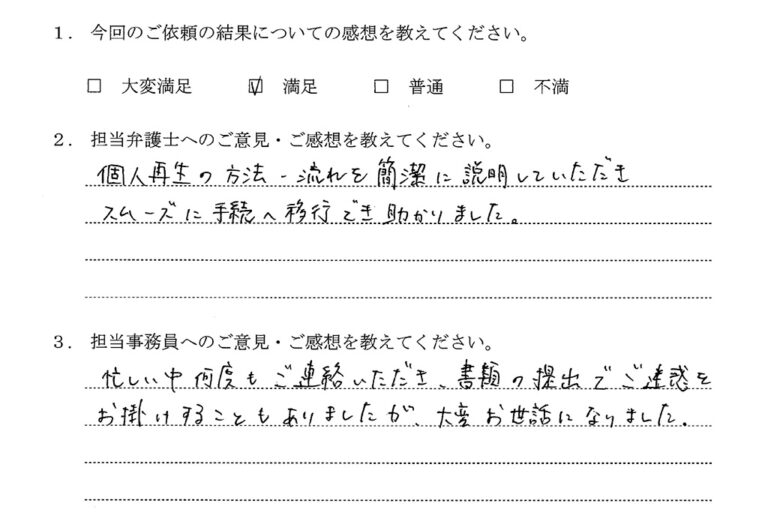 1. 今回のご依頼の結果についての感想を教えてください。
□ 大変満足 ☑ 満足 □ 普通 □ 不満
2. 担当弁護士へのご意見・ご感想を教えてください。
個人再生の方法-流れを簡潔に説明していただき
スムーズに手続へ移行でき助かりました。
3. 担当事務員へのご意見・ご感想を教えてください。
忙しい中何度もご連絡いただき、書類の提出でご迷惑を
お掛けすることもありましたが、大変お世話になりました。